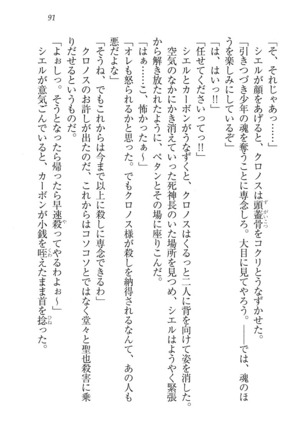 91
「そ、それじゃあっ……」
シエルが顔をあげると、クロノスは頭蓋骨をコクリとうなずかせた。
「引きつづき少年の魂を奪うことに専念しろ。大目に見てやろう。――では、魂のほ
うを楽しみにしているぞ」
「は、はいっ!!」
「任せてくださいってっ!!」
シエルとカーボンがうなずくと、クロノスはくるっと二人に背を向けて姿を消した。
空気のなかにかき消えていった死神長のいた場所を見つめ、シエルはようやく緊張
から解き放たれたように、ペタンとその場に座りこんだ。
「はぁ……こ、怖かったぁ〜」
「オレも怒られるかと思った。でもクロノス様が殺しを納得されるなんて、あの人も
悪だよな」
「でも、これからは今まで以上に殺しに専念できるわ」
クロノスのお許しが出たのだ、これからはコソコソとではなく堂々と聖也殺害に乗
りだせるというものだ。
「よぉしっ。そうとなったら帰ったら早速殺ってやるわよぉ〜」
シエルが意気ごんでいると、カーボンが小銭を咥えたまま首を捻った。